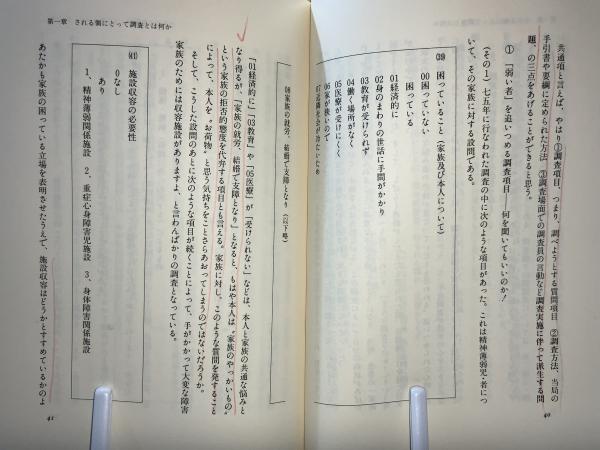 共通項と言えば、やはり①調査項目、つまり、調べようとする質問項目 ②調査方法、当局の
手引書や要綱に定められた方法 ③調査場面での調査員の言動など調査実施に伴って派生する問
題、の三点をあげることができると思う。
① 「弱い者」を追いつめる調査項目――何を聞いてもいいのか!
(その1) 七五年に行なわれた調査の中に次のような項目があった。これは精神薄弱児・者につ
いて、その家族に対する設問である。
(39) 困っていること(家族及び本人について)
00困っていない
困っている
01経済的に
02身のまわりの世話に手間がかかり
03教育が受けられず
04働く場所がなく
05医療が受けにくく
06家が狭いので
07近隣社会が冷たいため
40
第一章 される側にとって調査とは何か
08家族の就労、結婚で支障となり (以下略)
「01経済的に」「03教育」や「05医療」が「受けられない」などは、本人と家族の共通な悩みと
なり得るが、「家族の就労、結婚で支障となり」となると、もはや本人は〝家族のやっかいもの〟
という家族の拒否的態度を代弁する項目とも言える。家族に対し、このような質問を発すること
によって、本人を〝お荷物〟と思う気持ちをことさらあおってしまうのではないだろうか。
そして、こうした設問のあとに次のような項目が続くことによって、手がかかって大変な障害
家族のためには収容施設がありますよ、と言わんばかりの調査となっている。
(41) 施設収容の必要性
0なし
あり
1、精神薄弱関係施設 2、重症心身障害児施設 3、身体障害関係施設
あたかも家族の困っている立場を表明させたうえで、施設収容はどうかとすすめているかのよ
41